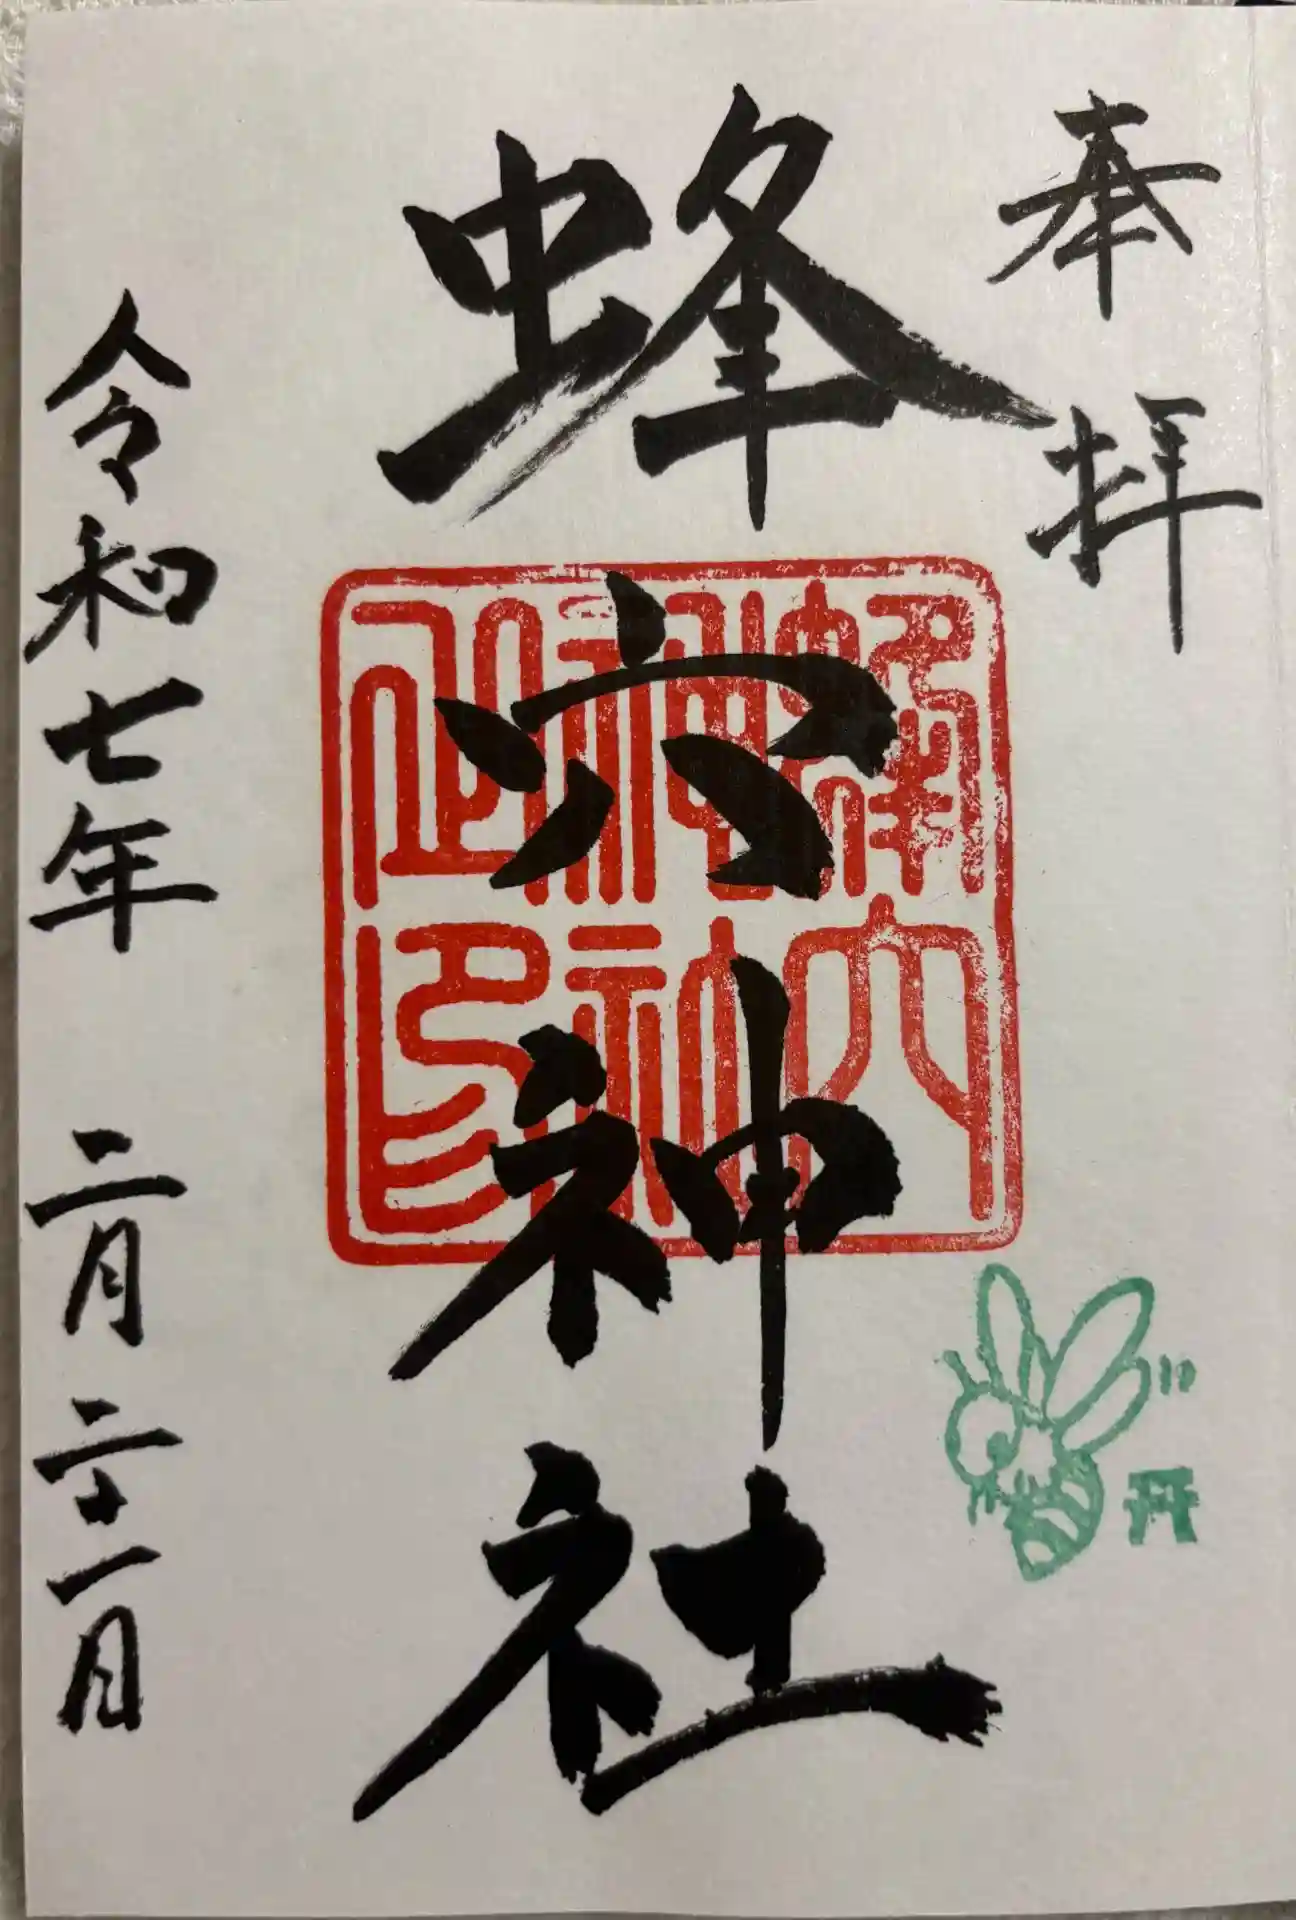 奉拝
蜂穴神社
蜂穴神社之印
令和七年 二月 二十一日